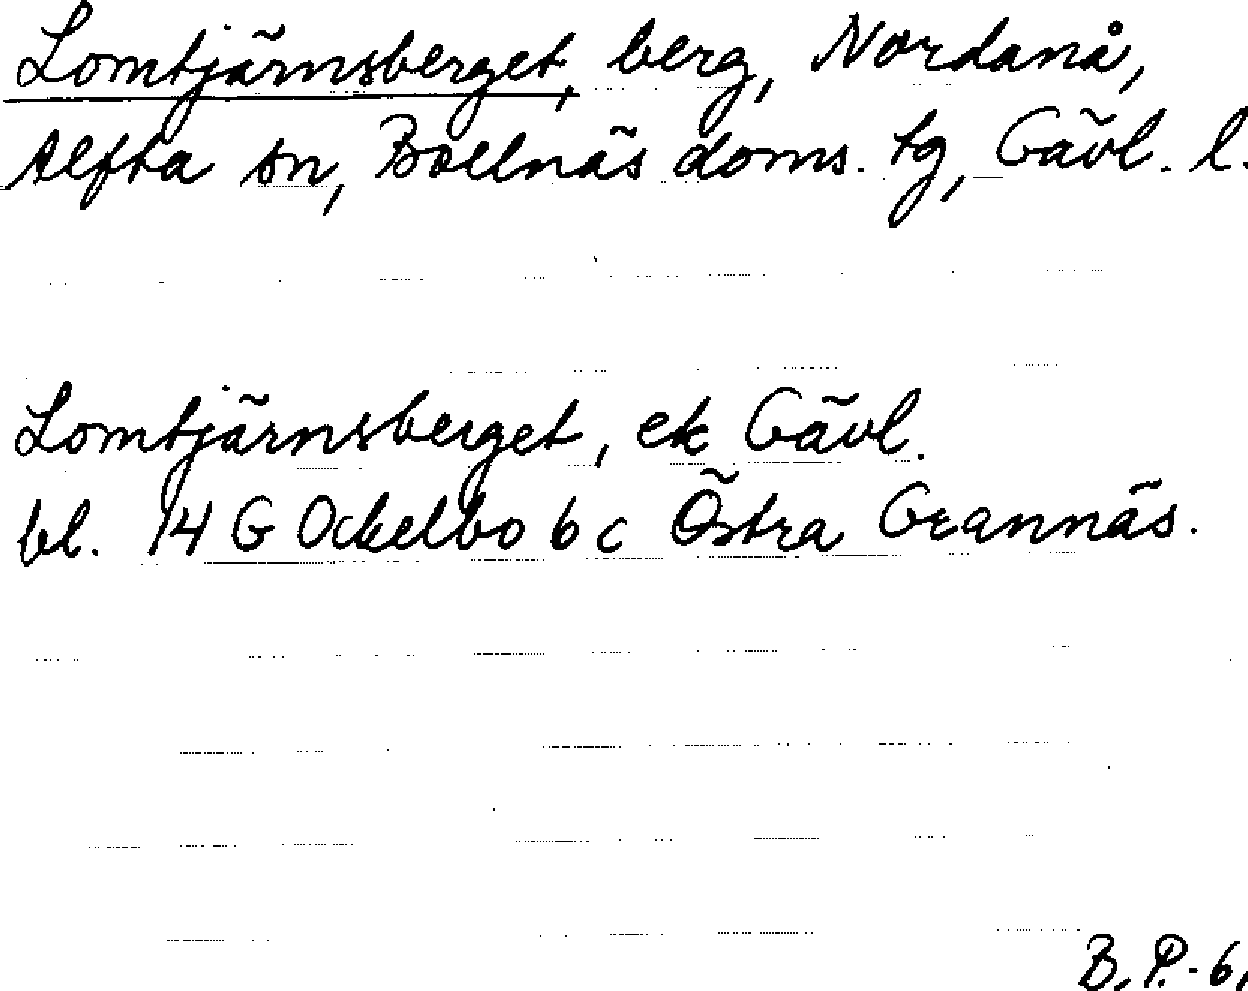 Lomtjärnsberget, berg, Nordanå,
Alfta sn, Bollnäs doms. tg, Gävl. l.
Lomtjärnsberget, ek Gävl.
bl. 14 G Ockelbo 6 c Östra Grannäs.
B. P. - 6